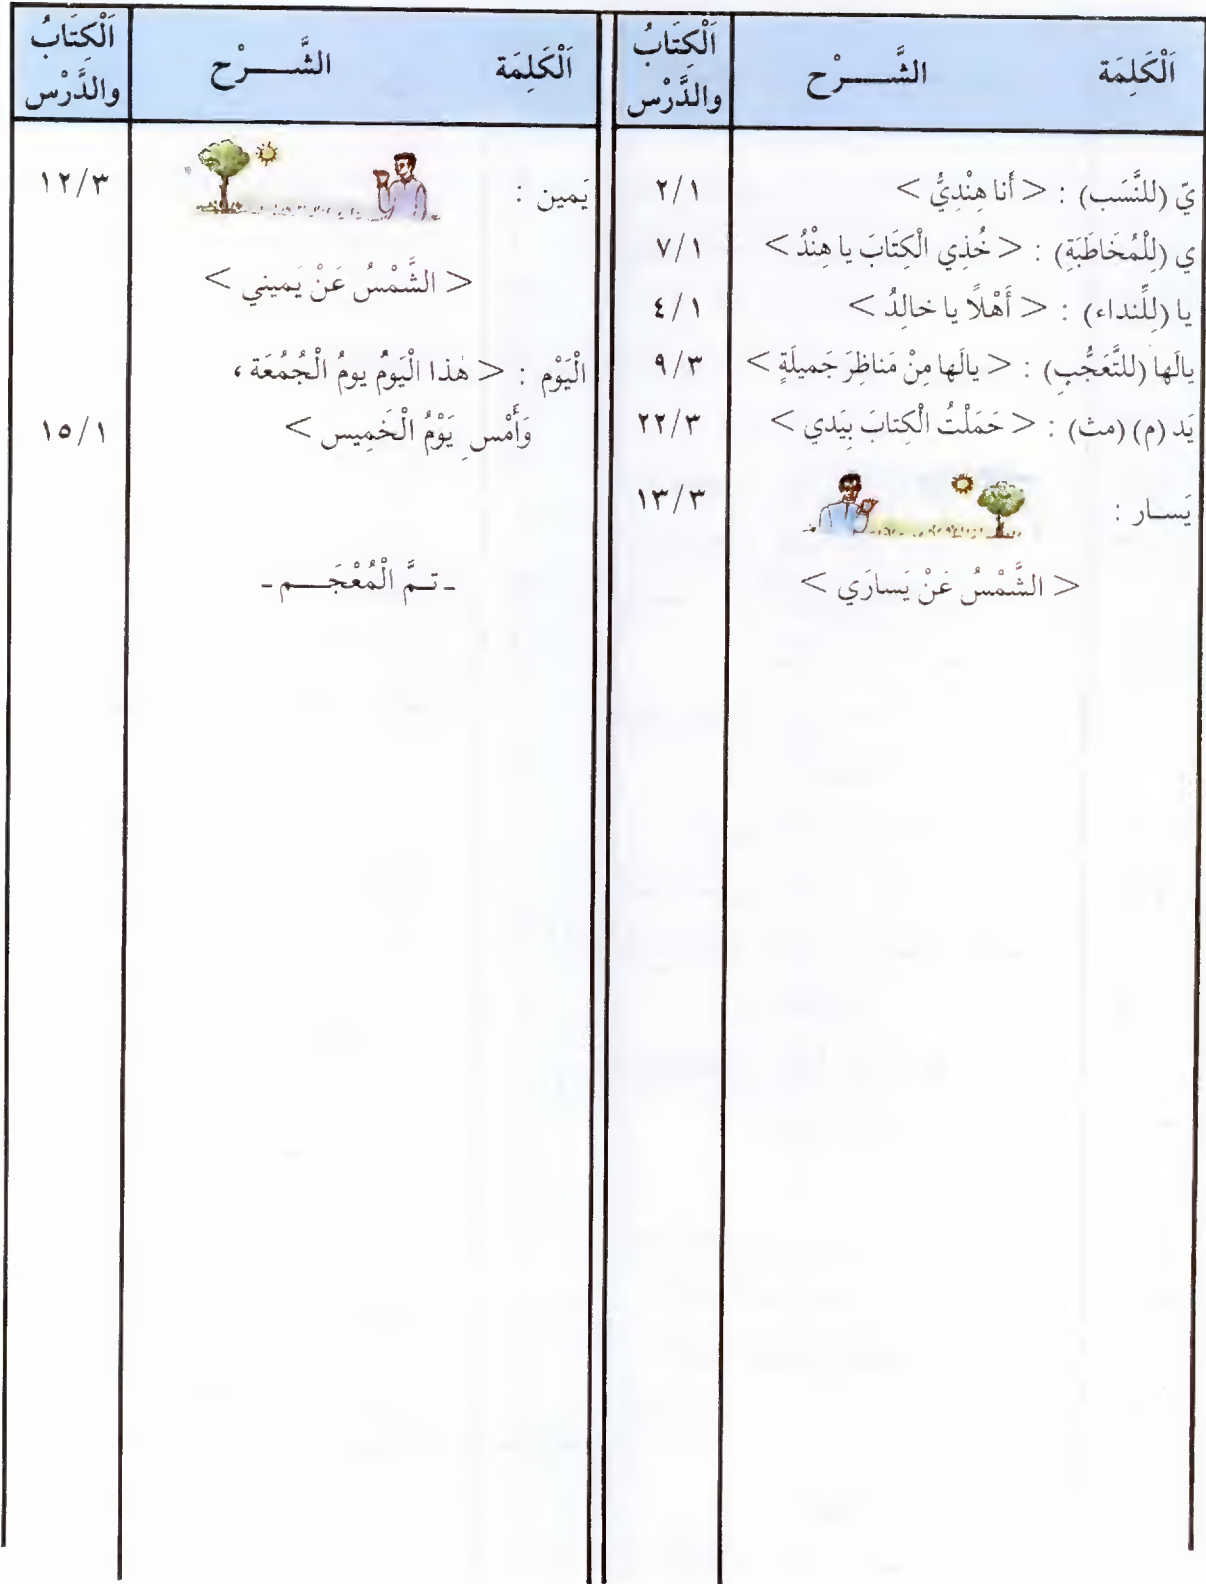 اَلْكَلِمَة الشَّـــرْح اَلْكِتَابُ والدَّرْس
يّ (للنَّسَب) : < أَنا هِنْدِيٌّ > ٢/١
ي (لِلْمُخَاطَبَةِ) : < خُذِي الْكِتَابَ يا هِنْدُ > ٧/١
يا (لِلنداء) : < أَهْلًا يا خالِدُ > ٤/١
يالَها (للتَّعَجُّبِ) : < يالَها مِنْ مَناظِرَ جَميلَةٍ > ٩/٣
يَد (م) (مث) : < حَمَلْتُ الْكِتابَ بِيَدي > ٢٢/٣
يَسـار : ١٣/٣
< الشَّمْسُ عَنْ يَسارَي >
اَلْكَلِمَة الشَّـــرْح اَلْكِتَابُ والدَّرْس
يَمين : ١٢/٣
< الشَّمْسُ عَنْ يَميني >
الْيَوْم : < هٰذا الْيَومُ يومُ الْجُمُعَة ،
وَأَمْسِ يَوْمُ الْخَمِيس > ١٥/١
ـ تـمَّ الْمُعْجَـــم ـ